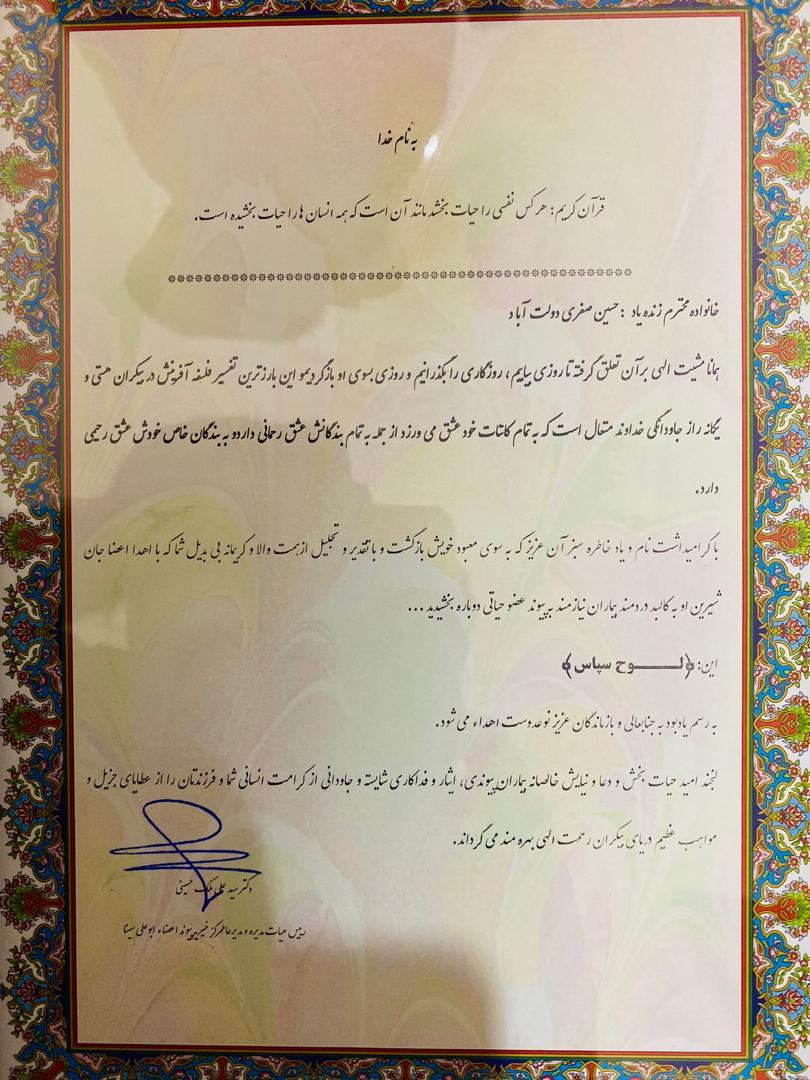 به نام خدا
قرآن کریم: هر کس نفسی را حیات بخشد مانند آن است که همه انسان ها را حیات بخشیده است.
خانواده محترم زنده یاد : حسین صفری دولت آباد
همانا مشیت الهی بر آن تعلق گرفته تا روزی بیاییم، روزگاری را بگذرانیم و روزی بسوی او بازگردیم و این بارزترین تفسیر فلسفه آفرینش در بیکران هستی و
یگانه راز جاودانگی خداوند متعال است که به تمام کائنات خود عشق می ورزد از جمله به تمام بندگانش عشق رحمانی دارد و به بندگان خاص خودش عشق رحیمی
دارد.
با گرامیداشت نام و یاد خاطره سبز آن عزیز که به سوی معبود خویش بازگشت و با تقدیر و تجلیل از همت والا و کریمانه بی بدیل شما که با اهدا اعضا جان
شیرین او به کالبد دردمند بیماران نیازمند به پیوند عضو حیاتی دوباره بخشیدید ...
این: ﴿لـــــوح سپاس﴾
به رسم یادبود به جنابعالی و بازماندگان عزیز نوعدوست اهداء می شود.
لبخند امید حیات بخش و دعا و نیایش خالصانه بیماران پیوندی، ایثار و فداکاری شایسته و جاودانی از کرامت انسانی شما و فرزندتان را از عطایای جزیل و
مواهب عظیم دریای بیکران رحمت الهی بهره مند می گرداند.
دکتر سید علی ملک حسینی
رییس هیات مدیره و مدیرعامل مرکز خیریه پیوند اعضاء ابوعلی سینا